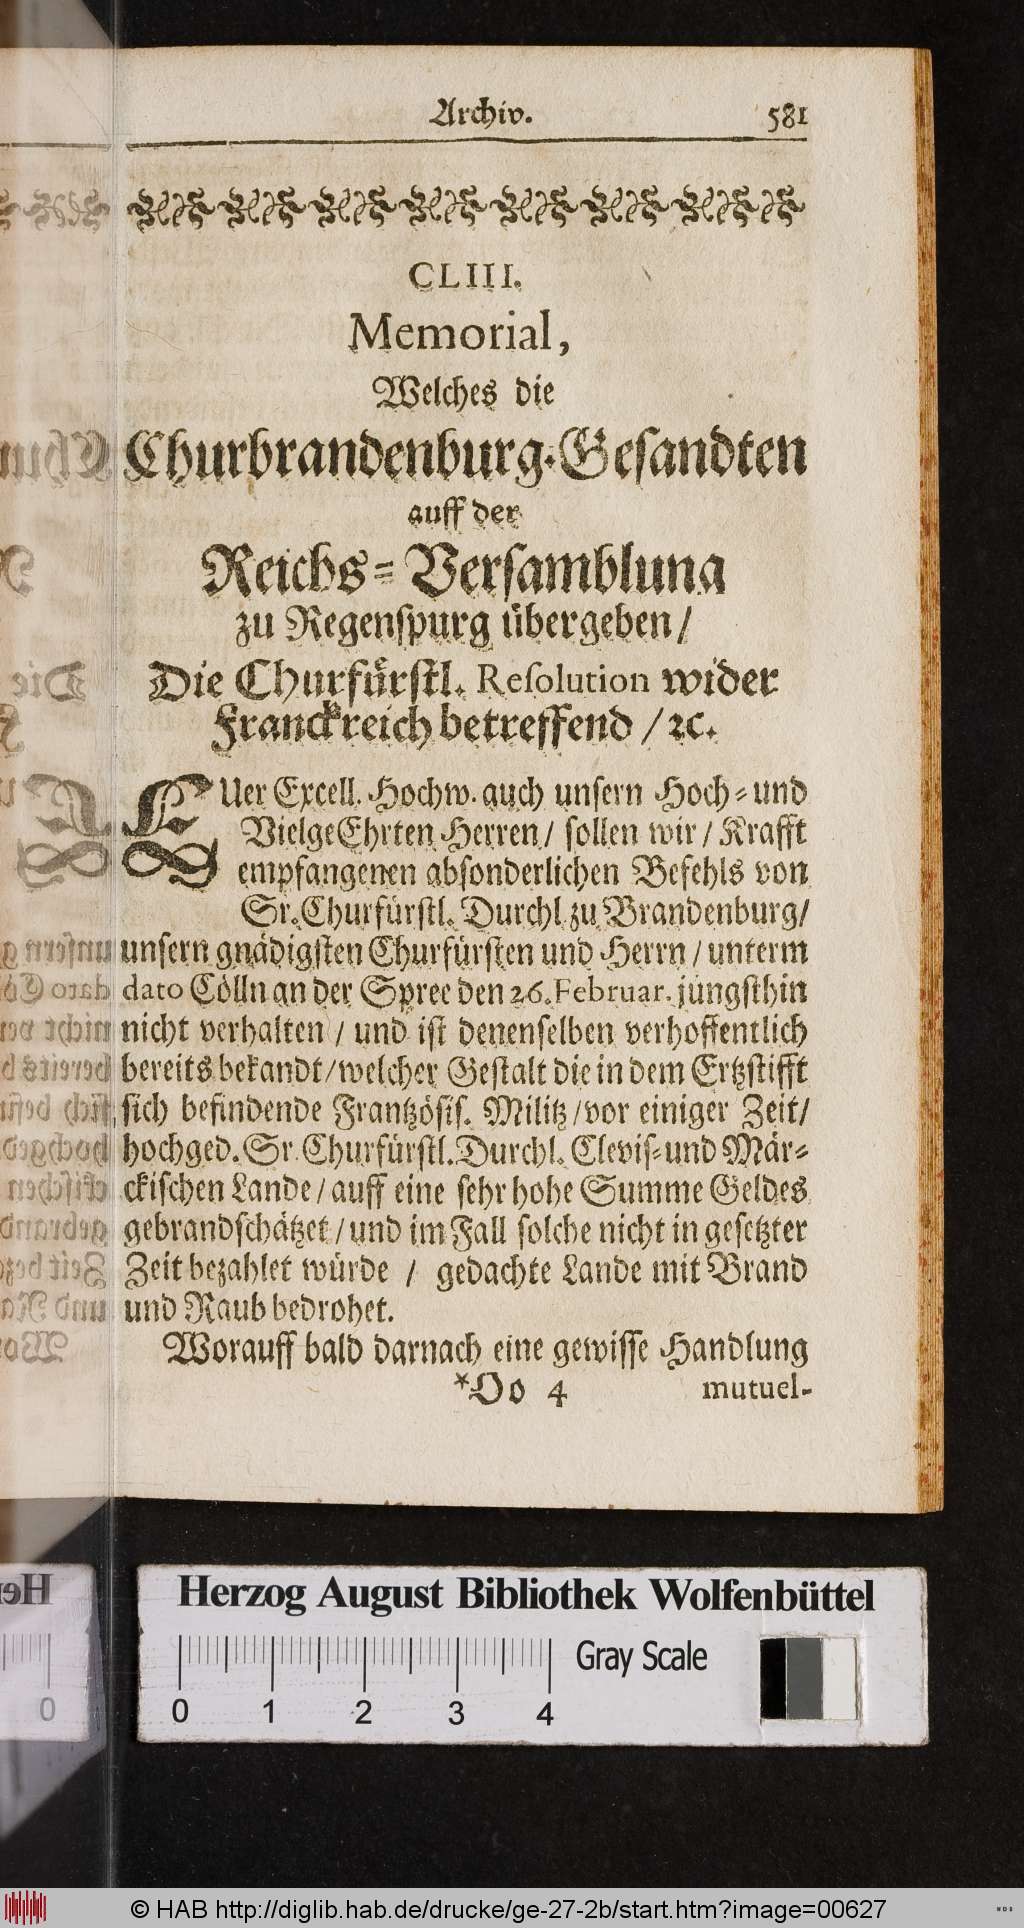 Archiv. 581
CLIII.
Memorial,
Welches die
Churbrandenburg-Gesandten
auff der
Reichs-Versamblung
zu Regenspurg übergeben/
Die Churfürstl. Resolution wider
Franckreich betreffend / ꝛc.
EUer Excell. Hochw. auch unsern Hoch- und
VielgeEhrten Herren / sollen wir / Krafft
empfangenen absonderlichen Befehls von
Sr. Churfürstl. Durchl. zu Brandenburg/
unsern gnädigsten Churfürsten und Herrn / unterm
dato Cölln an der Spree den 26. Februar. jüngsthin
nicht verhalten / und ist denenselben verhoffentlich
bereits bekandt/welcher Gestalt die in dem Ertzstifft
sich befindende Frantzösis. Militz/vor einiger Zeit/
hochged. Sr. Churfürstl. Durchl. Clevis- und Mär-
ckischen Lande/auff eine sehr hohe Summe Geldes
gebrandschätzet/und im Fall solche nicht in gesetzter
Zeit bezahlet würde / gedachte Lande mit Brand
und Raub bedrohet.
Worauff bald darnach eine gewisse Handlung
*Oo 4 mutuel-
Herzog August Bibliothek Wolfenbüttel
Gray Scale
0 1 2 3 4
© HAB http://diglib.hab.de/drucke/ge-27-2b/start.htm?image=00627